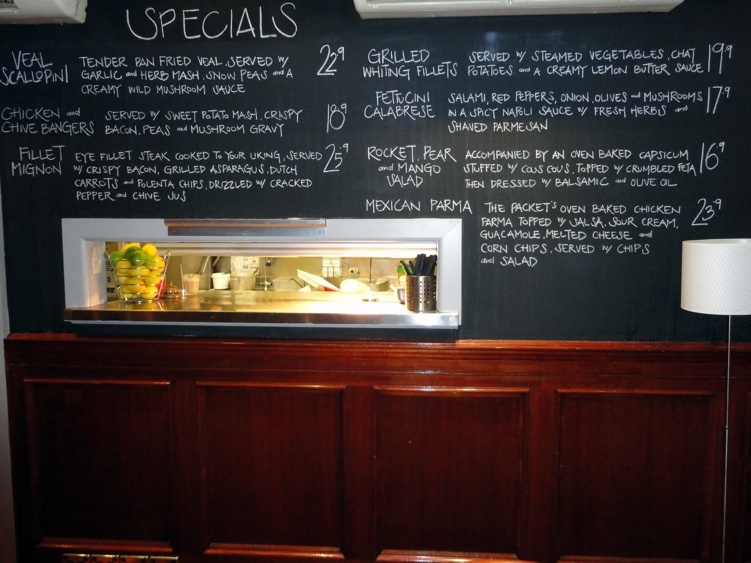 SPECIALS
VEAL SCALLOPINI
TENDER PAN FRIED VEAL, SERVED W/
GARLIC and HERB MASH, SNOW PEAS and A
CREAMY WILD MUSHROOM SAUCE
22.9
CHICKEN and
CHIVE BANGERS
SERVED W/ SWEET POTATO MASH, CRISPY
BACON, PEAS and MUSHROOM GRAVY
18.9
FILLET
MIGNON
EYE FILLET STEAK COOKED TO YOUR LIKING, SERVED
W/ CRISPY BACON, GRILLED ASPARAGUS, DUTCH
CARROTS and POLENTA CHIPS, DRIZZLED W/ CRACKED
PEPPER and CHIVE JUS
25.9
GRILLED
WHITING FILLETS
SERVED W/ STEAMED VEGETABLES, CHAT
POTATOES and A CREAMY LEMON BUTTER SAUCE
19.9
FETTUCINI
CALABRESE
SALAMI, RED PEPPERS, ONION, OLIVES and MUSHROOMS
IN A SPICY NAPOLI SAUCE W/ FRESH HERBS and
SHAVED PARMESAN
17.9
ROCKET, PEAR
and MANGO
SALAD
ACCOMPANIED BY AN OVEN BAKED CAPSICUM
STUFFED W/ COUS COUS, TOPPED W/ CRUMBLED FETA
THEN DRESSED W/ BALSAMIC and OLIVE OIL
16.9
MEXICAN PARMA
THE PACKET'S OVEN BAKED CHICKEN
PARMA TOPPED W/ SALSA, SOUR CREAM,
GUACAMOLE, MELTED CHEESE and
CORN CHIPS, SERVED W/ CHIPS
and SALAD
23.9